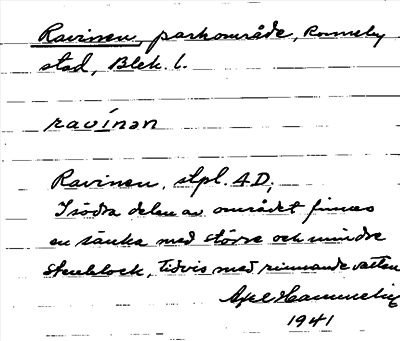 Ravinen, parkområde, Ronneby
stad, Blek. l.
ravínən
Ravinen, stpl. A.D.
I södra delen av området finnes
en sänka med större och mindre
stenblock, tidvis med rinnande vatten
Axel
1941